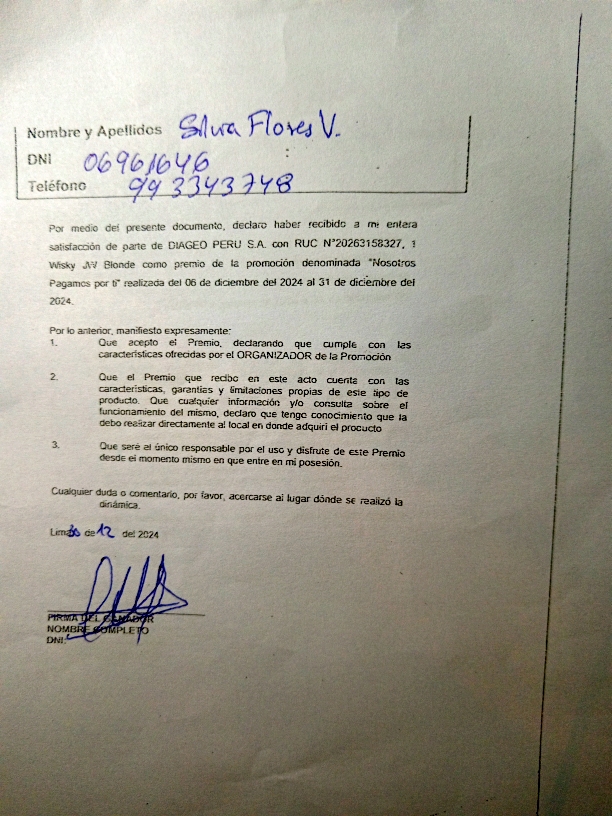 Nombre y Apellidos Silva Flores V.
DNI 06961646
Teléfono 993343748
Por medio del presente documento, declaro haber recibido a mi entera
satisfacción de parte de DIAGEO PERU S.A. con RUC N°20263158327, 1
Wisky JW Blonde como premio de la promoción denominada "Nosotros
Pagamos por ti" realizada del 06 de diciembre del 2024 al 31 de diciembre del
2024.
Por lo anterior, manifiesto expresamente:
1. Que acepto el Premio, declarando que cumple con las
características ofrecidas por el ORGANIZADOR de la Promoción
2. Que el Premio que recibo en este acto cuenta con las
características, garantías y limitaciones propias de este tipo de
producto. Que cualquier información y/o consulta sobre el
funcionamiento del mismo, declaro que tengo conocimiento que la
debo realizar directamente al local en donde adquirí el producto
3. Que seré el único responsable por el uso y disfrute de este Premio
desde el momento mismo en que entre en mi posesión.
Cualquier duda o comentario, por favor, acercarse al lugar dónde se realizó la
dinámica.
Lima 30 de 12 del 2024
FIRMA DEL GANADOR
NOMBRE COMPLETO
DNI: